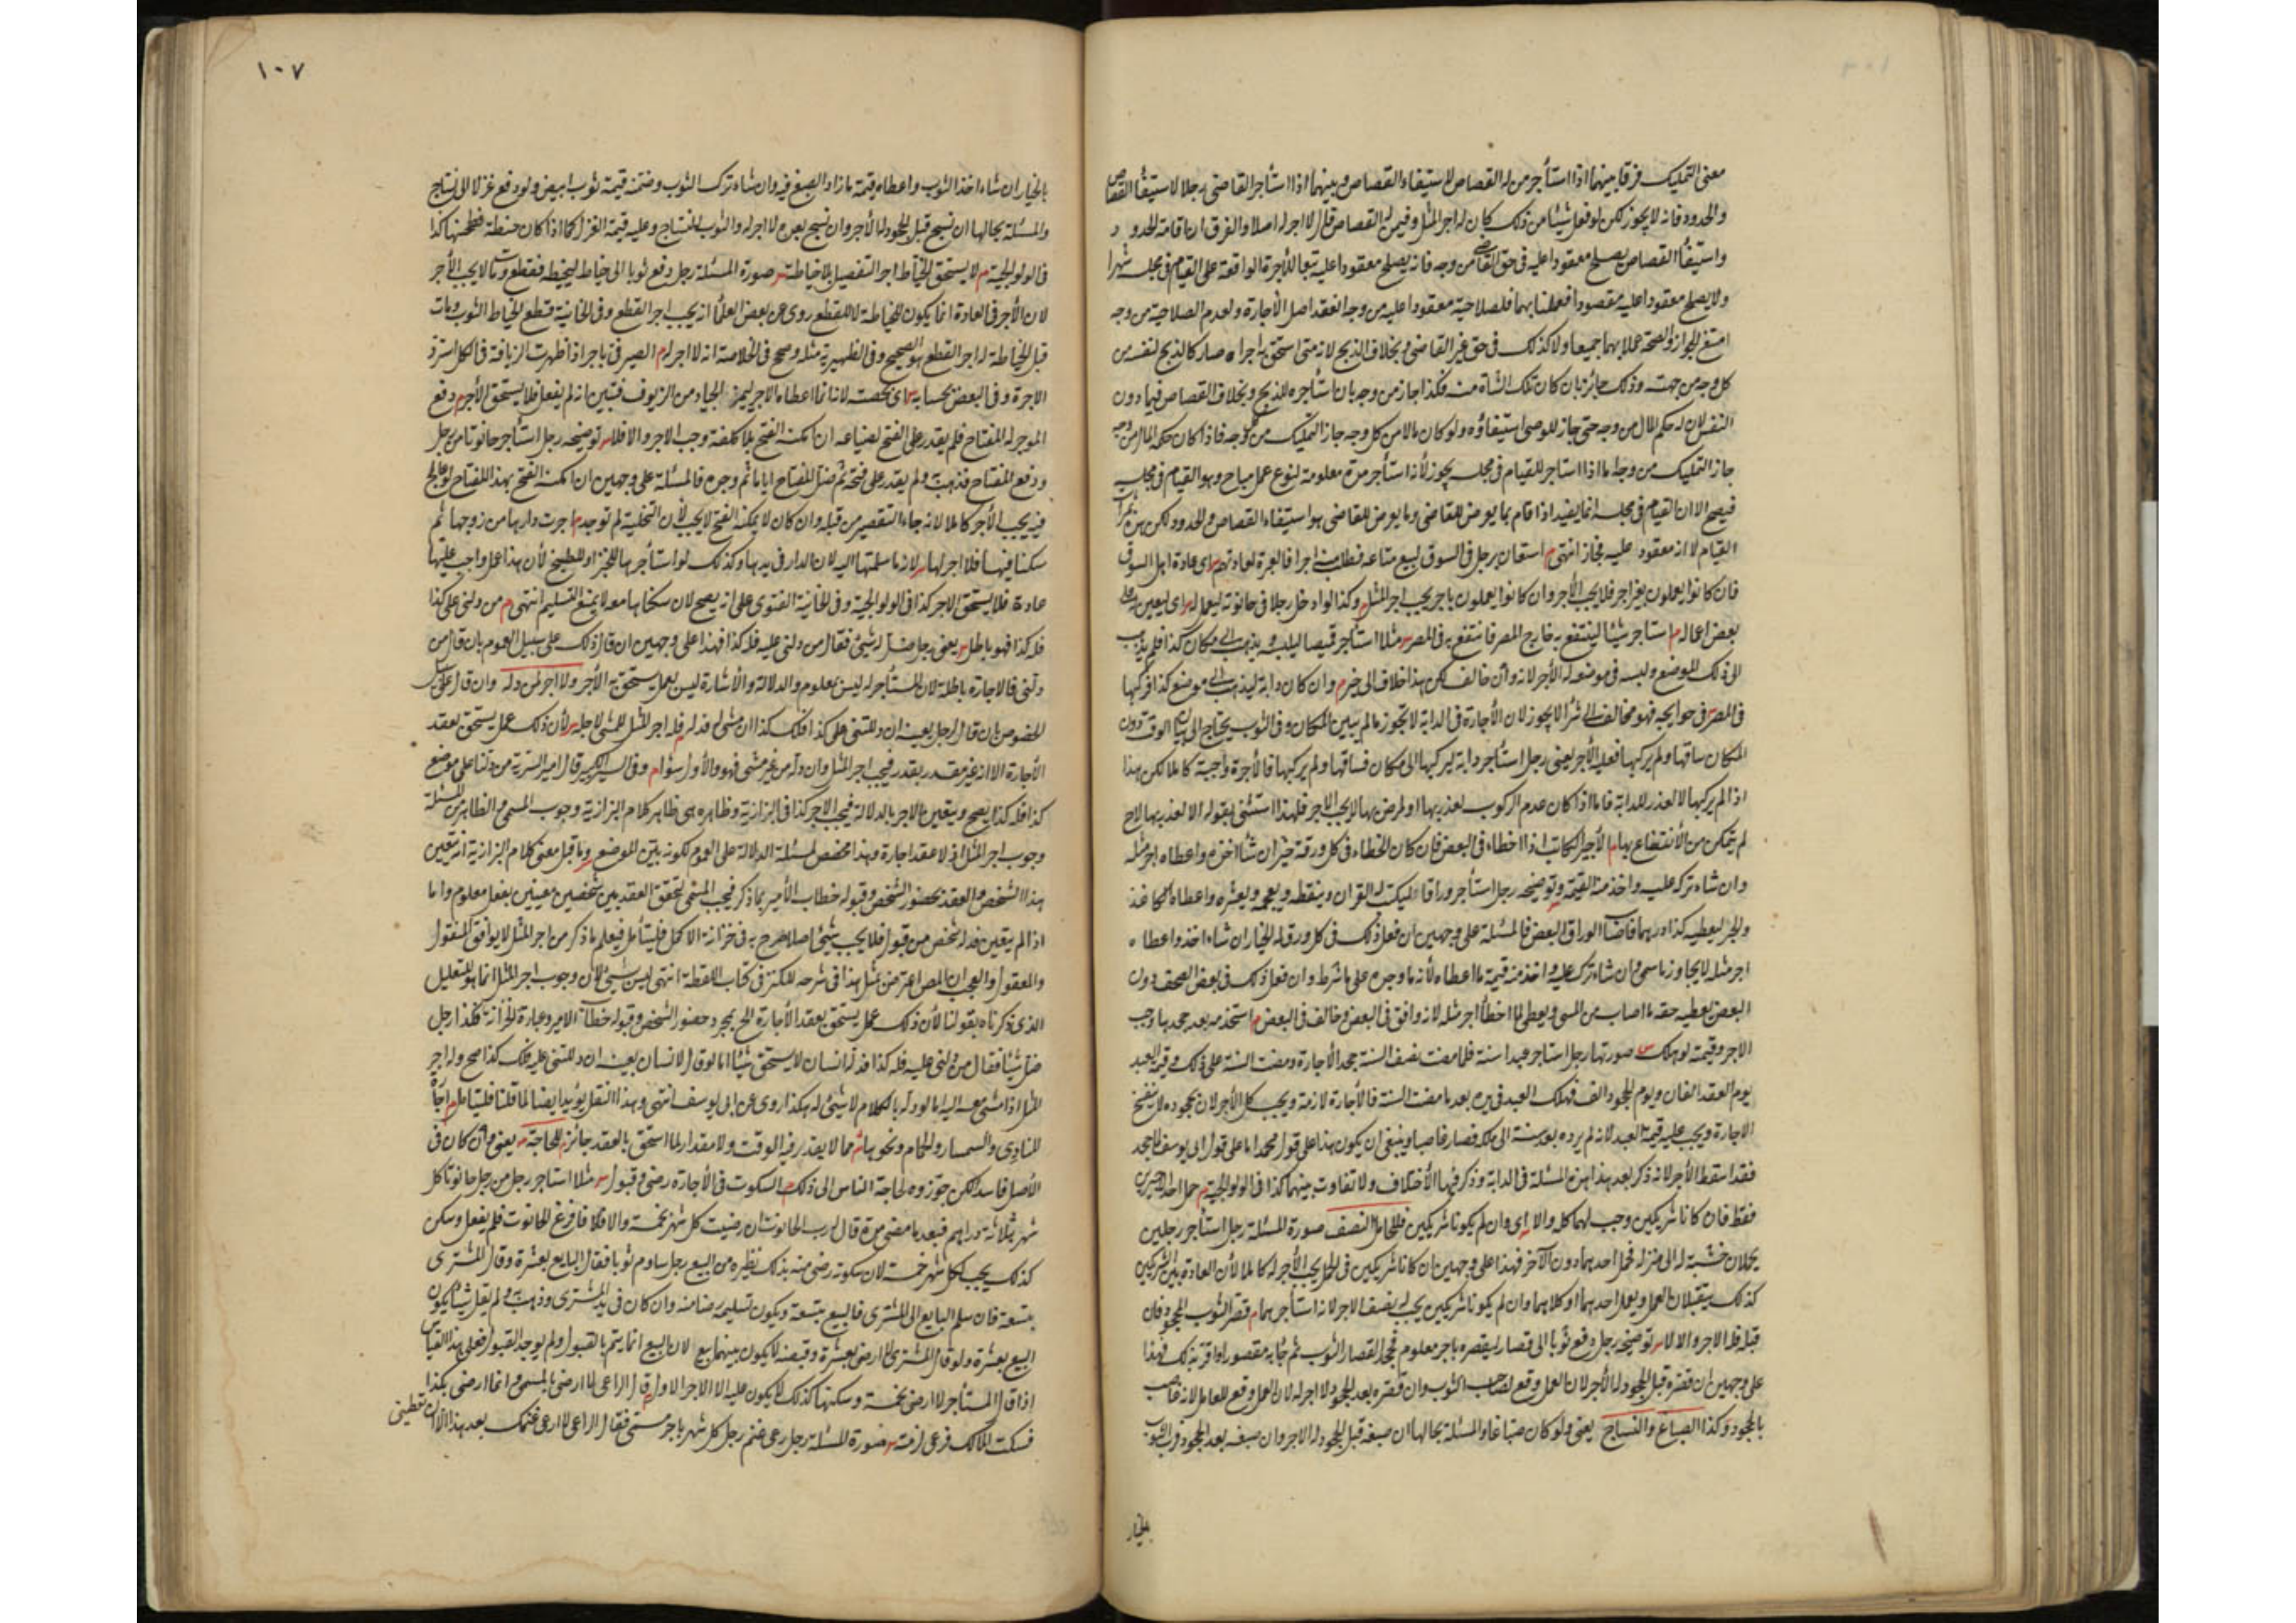 معنى التمليك فرقا بينهما اذا استأجر من له القصاص لاستيفاء القصاص وبينهما اذا استأجر القاضى رجلا لاستيفاء القصاص
والحدود فانه لا يجوز لكن لو فعل شيئا من ذلك كان له اجر المثل وفيمن له القصاص قال لا اجر له اصلا والفرق ان اقامة الحدود
واستيفاء القصاص يصلح معقودا عليه فى حق القاضى من وجه فانه يصلح معقودا عليه تبعا للأجرة الواقعة على القيام فى مجلسه شهرا
ولا يصلح معقودا عليه مقصودا فعملنا بهما فلصلاحية معقودا عليه من وجه انعقد اصل الأجارة ولعدم الصلاحية من وجه
امتنع الجواز والصحة عملا بهما جميعا ولا كذلك فى حق غير القاضى وبخلاف الذبح لانه متى استحق اجراه صار كالذبح لنفسه من
كل وجه من جهته وذلك جائز بان كان تلك الشاة منه فكذا جاز من وجه بان استأجره للذبح وبخلاف القصاص فيما دون
النفس لان له حكم المال من وجه حتى جاز للوصى استيفاؤه ولو كان مالا من كل وجه جاز التمليك من كل وجه فاذا كان حكم المال من وجه
جاز التمليك من وجه اما اذا استاجر للقيام فى مجلسه يجوز لأنه استأجر مدة معلومة لنوع عمل مباح وهو القيام فى مجلسه
فيصح الا ان القيام فى مجلسه انما يفيد اذا قام بما يعرض للقاضى وما يعرض للقاضى هو استيفاء القصاص والحدود لكن هذه ثمرات
القيام لا انه معقود عليه فجاز انتهى م استعان برجل فى السوق ليبيع متاعه فطلب منه اجرا فالعبرة لعادتهم اى عادة اهل السوق
فان كانوا يعملون بغير اجر فلا يجب الأجر وان كانوا يعملون باجر يجب اجر المثل وكذا لو ادخل رجلا فى حانوته ليعمل له اى ليعين على
بعض اعماله م استاجر شيئا لينتفع به خارج المصر فانتفع به فى المصر مثلا استأجر قميصا ليلبسه ويذهب الى مكان كذا فلم يذهب
الى ذلك الموضع ولبسه فى موضعه له الأجر لانه وان خالف لكن هذا خلاف الى خير م وان كان دابة ليذهب الى موضع كذا فركبها
فى المصر فى حوايجه فهو مخالف الى شر الا يجوز لان الأجارة فى الدابة لا تجوز ما لم يبين المكان وفى الثوب يحتاج الى بيان الوقت دون
المكان ساقها ولم يركبها فعليه الأجر يعنى رجل استأجر دابة ليركبها الى مكان فساقها ولم يركبها فالأجرة واجبة كاملا لكن هذا
اذا لم يركبها لا لعذر للدابة فاما اذا كان عدم الركوب لعذر بها او لمرض بها لا يجب الاجر فلهذا استثنى بقوله الا لعذر بها لاح
لم يتمكن من الأنتفاع بها م لأجير الكاتب اذا اخطاء فى البعض فان كان الخطاء فى كل ورقة خير ان شاء اخذه واعطاه اجر مثله
وان شاء تركه عليه واخذ منه القيمة وتوضيحه رجل استأجر وراقا ليكتب له القران وينقطه ويعجمه ويعشره واعطاه الكاغذ
والحبر ليعطيه كذا درهما فاخطأ الوراق البعض فالمسئلة على وجهين ان فعل ذلك فى كل ورق له الخيار ان شاء اخذ واعطاه
اجر مثله لا يجاوز ما سمى وان شاء ترك عليه واخذ منه قيمة ما اعطاه لأنه ما وجده على ما شرط وان فعل ذلك فى بعض الصحف دون
البعض يعطيه حقه ما اصاب من المسمى ويعطى لما اخطأ اجر مثله لانه وافق فى البعض وخالف فى البعض م استخدمه بعد جحدها وجب
الاجر وقيمته لو هلك س صورتها رجل استاجر عبدا سنة فلما مضت نصف السنة جحد الأجارة ومضت السنة على ذلك وقيمة العبد
يوم العقد الفان ويوم الجحود الف فهلك العبد فى يده بعد ما مضت السنة فالأجارة لازمة ويجب كل الأجر لان بجحوده لا ينفسخ
الاجارة ويجب عليه قيمة العبد لانه لم يرده بعد سنة الى ملكه فصار غاصبا وينبغى ان يكون هذا على قول محمد اما على قول ابى يوسف للجحد
فقد اسقط الأجر لانه ذكر بعد هذا هذه المسئلة فى الدابة وذكر فيها الأختلاف ولا تفاوت بينهما كذا فى الولوالجية م حمل احد الاجيرين
فقط فان كانا شريكين وجب لهما كله والا اى وان لم يكونا شريكين فللحامل النصف صورة المسئلة رجل استأجر رجلين
يحملان خشبة له الى منزله فحمل احدهما دون الآخر فهذا على وجهين ان كانا شريكين فى الحمل يجب الأجر له كاملا لأن العادة بين الشريكين
كذلك يتقبلان العمل ويعمل احدهما او كلاهما وان لم يكونا شريكين يجب له نصف الاجر لانه استأجرهما م قصر الثوب المجحود فان
قبله فله الاجر والا لا س توضيحه رجل دفع ثوبا الى قصار ليقصره باجر معلوم فجحد القصار الثوب ثم جاء به مقصورا واقر بذلك فهذا
على وجهين ان قصره قبل الجحود له الأجر لان العمل وقع لصاحب الثوب وان قصره بعد الجحود لا اجر له لان العمل وقع للعامل لانه غاصب
بالجحود وكذا الصباغ والنساج يعنى ولو كان صباغا والمسئلة بحالها ان صبغه قبل الجحود له الاجر وان صبغه بعد الجحود فرب الثوب
بالخيار
١٠٧
بالخيار ان شاء اخذ الثوب واعطاه قيمة ما زاد الصبغ فيه وان شاء ترك الثوب وضمنه قيمة ثوب ابيض ولو دفع غزلا الى نساج
والمسئلة بحالها ان نسج قبل الجحود له الأجر وان نسج بعده لا اجر له والثوب للنساج وعليه قيمة الغزل كما اذا كان حنطة فطحنها كذا
فى الولوالجية م لا يستحق الخياط اجر التفصيل بلا خياطة س صورة المسئلة رجل دفع ثوبا الى خياط ليخيطه فقطع ومات لا يجب الأجر
لان الأجر فى العادة انما يكون للخياطة لا للقطع روى عن بعض العلماء انه يجب اجر القطع وفى الخانية قطع الخياط الثوب ومات
قبل الخياطة له اجر القطع هو الصحيح وفى الظهيرية مثله وصحح فى الخلاصة انه لا اجر له م الصيرفى باجر اذا ظهرت الزيافة فى الكل استرد
الاجرة وفى البعض بحسابه اى بحصته لانه انما اعطاه الاجر ليميز الجياد من الزيوف فتبين انه لم يفعل فلا يستحق الأجر م دفع
الموجر له المفتاح فلم يقدر على الفتح لضياعه ان امكنه الفتح بلا كلفة وجب الاجر والا فلا س توضيحه رجل استأجر حانوتا من رجل
ودفع المفتاح فذهب ولم يقدر على فتحه ثم ضل المفتاح اياما ثم وجده فالمسئلة على وجهين ان امكنه الفتح بهذا المفتاح لو عالج
فيه يجب الأجر كاملا لانه جاء التقصير من قبله وان كان لا يمكنه الفتح لا يجب لأن التخلية لم توجد م اجرت دارها من زوجها ثم
سكنا فيها فلا اجر لها س لانه ما سلمتها اليه لان الدار فى يدها وكذلك لو استأجرها للخبز او للطبيخ لأن هذا عمل واجب عليها
عادة فلا يستحق الاجر كذا فى الولوالجية وفى الخانية الفتوى على انه يصح لان سكناها معه لا يمنع التسليم انتهى م من دلنى على كذا
فله كذا فهو باطل س يعنى رجل ضل له شئ فقال من دلنى عليه فله كذا فهذا على وجهين ان قال ذلك على سبيل العموم بان قال من
دلنى فالاجارة باطلة لان المستأجر له ليس بمعلوم والدلالة والأشارة ليس بعمل يستحق به الأجر ولا اجر لمن دله وان قال على سبيل
الخصوص بان قال لرجل بعينه ان دللتنى على كذا فلك كذا ان مشى له فدله فله اجر المثل للمشى لاجله س لأن ذلك عمل يستحق بعقد
الأجارة الا انه غير مقدر بقدر فيجب اجر المثل وان دله من غير مشى فهو والأول سواء م وفى السير الكبير قال امير السرية من دلنا على موضع
كذا فله كذا يصح ويتعين الاجر بالدلالة فيجب الاجر كذا فى البزازية وظاهره هى ظاهر كلام البزازية وجوب المسمى والظاهر من المسئلة
وجوب اجر المثل اذ لا عقد اجارة وهذا مخصص لمسئلة الدلالة على العموم لكونه بين الموضع وما قيل معنى كلام البزازية انه يتعين
هذا الشخص والعقد بحضور الشخص وقبوله خطاب الأمير بما ذكر فيجب المسمى لتحقق العقد بين شخصين معينين بفعل معلوم واما
اذا لم يتعين فدله شخص من قبول فلا يجب شئ اصلا صرح به فى خزانة الاكمل فليتأمل فيعلم ما ذكر من اجر المثل لا يوافق المنقول
والمعقول والعجب ان المص اعترض عن مثل هذا فى شرحه للكنز فى كتاب اللقطة انتهى ليس بشئ لأن وجوب اجر المثل انما هو للتعليل
الذى ذكرناه بقولنا لأن ذلك عمل يستحق بعقد الأجارة الخ بمجرد حضور الشخص وقبوله خطاب الامير وعبارة الخزانة هكذا رجل
ضل شيئا فقال من دلنى عليه فله كذا فدله انسان لا يستحق شيئا اما لو قال لانسان بعينه ان دللتنى عليه فلك كذا صح وله اجر
المثل اذا مشى معه اليه اما لو دله بالكلام لا شئ له هكذا روى عن ابى يوسف انتهى وهذا النقل يؤيد ايضا لما قلنا فليتأمل م اجارة
المنادى والسمسار والحمام ونحوها مما لا يقدر فيه الوقت ولا مقدار لما استحق بالعقد جائز للحاجة س يعنى وان كان فى
الأصل فاسد لكن جوزوه لحاجة الناس الى ذلك م السكوت فى الأجارة رضى وقبول س مثلا استاجر رجل من رجل حانوتا كل
شهر بثلاثة دراهم فبعد ما مضى مدة قال رب الحانوت ان رضيت كل شهر بخمسة والا فلا فافرغ الحانوت فلم يفعل وسكن
كذلك يجب لكل شهر خمسة لان سكوته رضى منه بذلك نظيره من البيع رجل ساوم ثوبا فقال البايع بعشرة وقال المشترى
بتسعة فان سلم البايع الى المشترى فالبيع بتسعة ويكون تسليمه رضا منه وان كان فى يد المشترى وذهب ولم يقل شيئا يكون
البيع بعشرة ولو قال المشترى لا ارضى بعشرة وقبضه لا يكون بينهما بيع لان البيع انما يتم بالقبول ولم يوجد القبول فعلى هذا القياس
اذا قال المستأجر لا ارضى بخمسة وسكنها كذلك لا يكون عليه الا الاجر الاول م قال الراعى لا ارضى بالمسمى وانما ارضى بكذا
فسكت المالك فرعى لزمته س صورة المسئلة رجل رعى غنم رجل كل شهر باجر مسمى فقال الراعى لا ارعى غنمك بعد هذا الا ان تعطينى